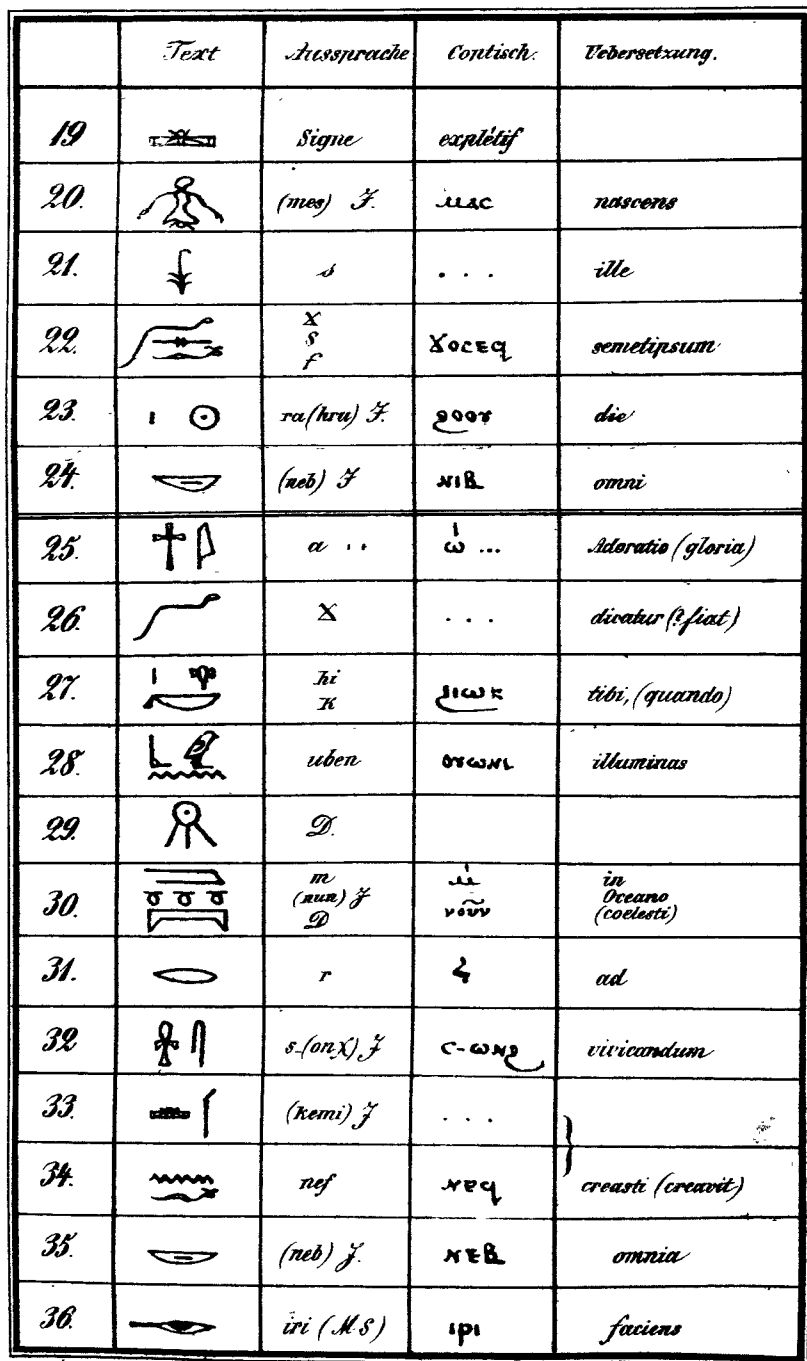 Text Aussprache Coptisch. Uebersetzung.
19 Signe explétif
20. (mes) J. ⲙⲁⲥ nascens
21. s . . . ille
22. X
s
f ϫⲟⲥⲉϥ semetipsum
23. ra (hru) J. ϩⲟⲟⲩ die
24. (neb) J ⲛⲓⲃ omni
25. a .. ⲱ̇ ... Adoratio (gloria)
26. X . . . dicatur (? fiat)
27. hi
K ϩⲓⲱⲕ tibi, (quando)
28. uben ⲟⲩⲱⲛⲓ illuminas
29. D.
30. m
(nun) J
D ⲙ̇
νοῦν in
Oceano
(coelesti)
31. r ad
32 s-(onχ) J ⲥ-ⲱⲛϩ vivicandum
33. (Kemi) J . . .
34. nef ⲛⲉϥ creasti (creavit)
35. (neb) J. ⲛⲉⲃ omnia
36. iri (MS) ⲓⲣⲓ faciens